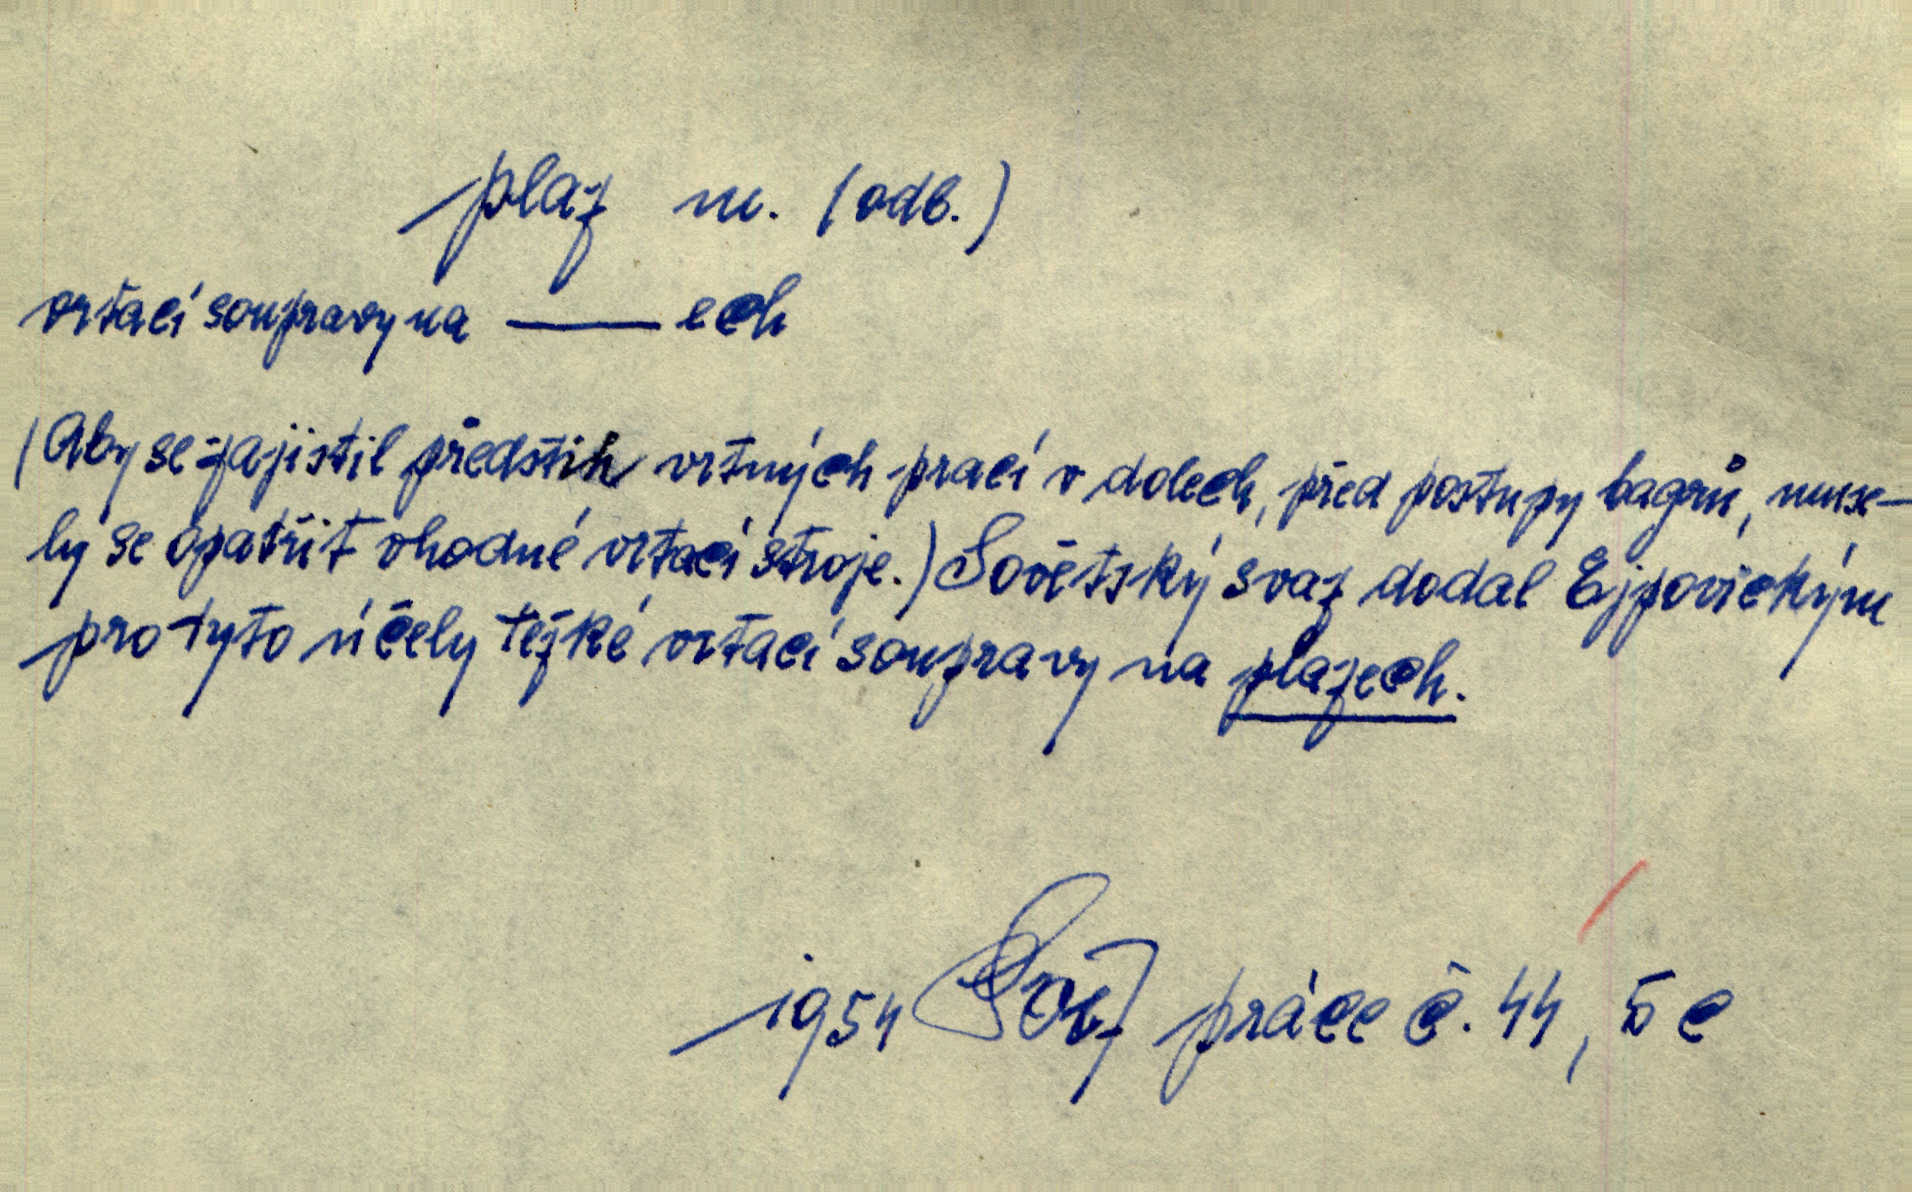 plaz m. (odb.)
vrtací soupravy na —— ech
(Aby se zajistil předstih vrtných prací v dolech, před postupy bagrů, muse-
ly se opatřit vhodné vrtací stroje.) Sovětský svaz dodal Ejpovickým
pro tyto účely těžké vrtací soupravy na plazech.
1954 práce č. 44, 5 c